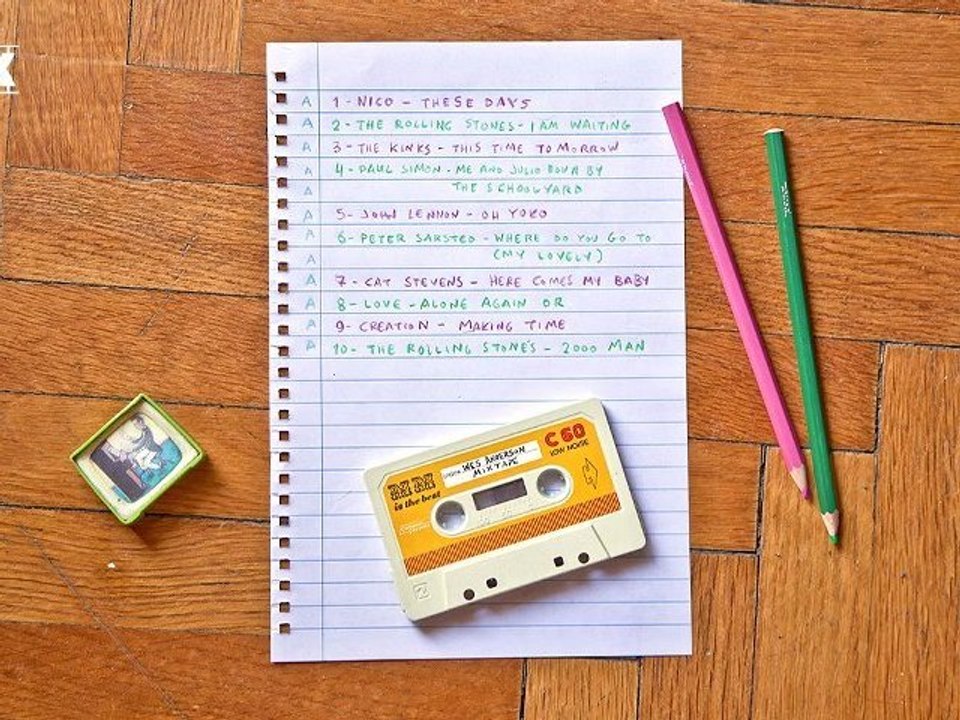 A 1 - NICO - THESE DAYS
A 2 - THE ROLLING STONES - I AM WAITING
A 3 - THE KINKS - THIS TIME TOMORROW
A 4 - PAUL SIMON - ME AND JULIO DOWN BY
A THE SCHOOLYARD
A 5 - JOHN LENNON - OH YOKO
A 6 - PETER SARSTED - WHERE DO YOU GO TO
A (MY LOVELY)
A 7 - CAT STEVENS - HERE COMES MY BABY
A 8 - LOVE - ALONE AGAIN OR
A 9 - CREATION - MAKING TIME
A 10 - THE ROLLING STONES - 2000 MAN
C 60
LOW NOISE
WES ANDERSON
MIXTAPE
is the best
2